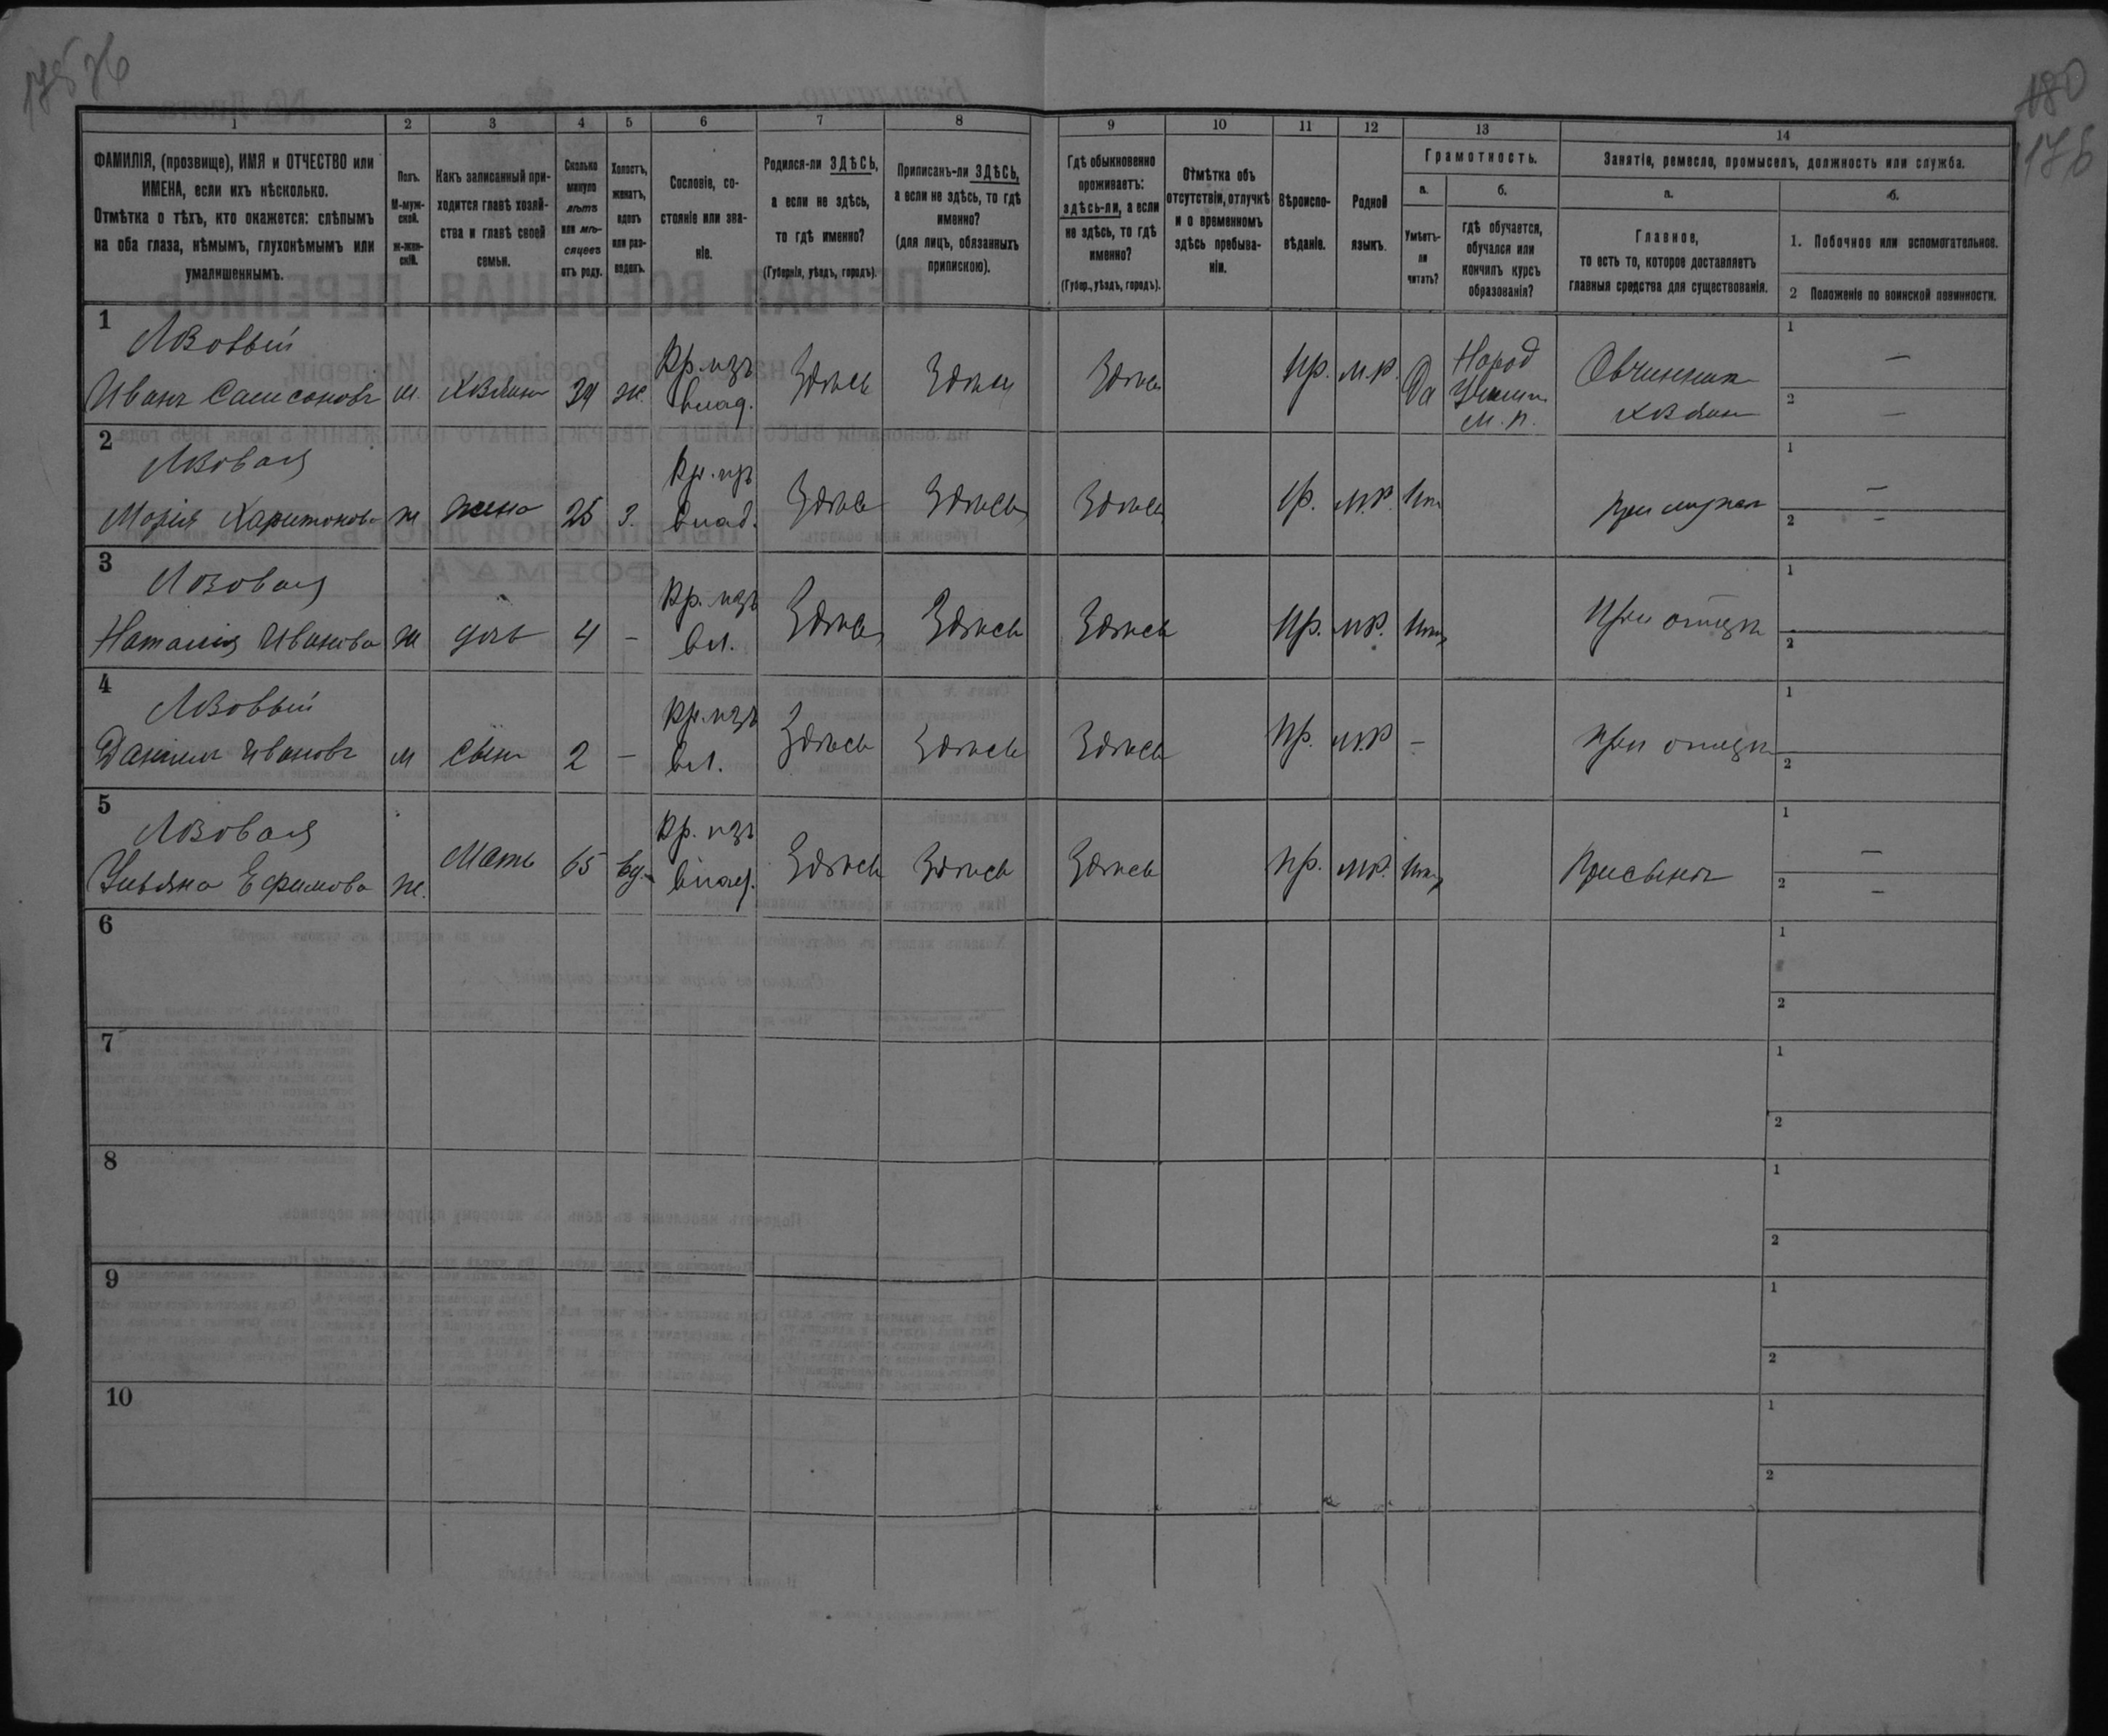 180
176
1 2 3 4 5 6 7 8 9 10 11 12 13 14
ФАМИЛІЯ, (прозвище), ИМЯ и ОТЧЕСТВО или ИМЕНА, если ихъ нѣсколько.
Отмѣтка о тѣхъ, кто окажется: слѣпымъ на оба глаза, нѣмымъ, глухонѣмымъ или умалишеннымъ.
Полъ. М-мужской. ж-женскій.
Какъ записанный приходится главѣ хозяйства и главѣ своей семьи.
Сколько минуло лѣтъ или мѣсяцевъ отъ роду.
Холостъ, женатъ, вдовъ или разведенъ.
Сословіе, состояніе или званіе.
Родился-ли ЗДѢСЬ, а если не здѣсь, то гдѣ именно?
(Губернія, уѣздъ, городъ).
Приписанъ-ли ЗДѢСЬ, а если не здѣсь, то гдѣ именно?
(для лицъ, обязанныхъ припискою).
Гдѣ обыкновенно проживаетъ: здѣсь-ли, а если не здѣсь, то гдѣ именно?
(Губер., уѣздъ, городъ).
Отмѣтка объ отсутствіи, отлучкѣ и о временномъ здѣсь пребываніи.
Вѣроисповѣданіе.
Родной языкъ.
Грамотность.
а.
Умѣетъ-ли читать?
б.
гдѣ обучается, обучался или кончилъ курсъ образованія?
Занятіе, ремесло, промыселъ, должность или служба.
а.
Главное,
то есть то, которое доставляетъ главныя средства для существованія.
б.
1. Побочное или вспомогательное.
2 Положеніе по воинской повинности.
1 Лозовый Иванъ Самсоновъ м. хозяин 39 ж. Кр. изъ влад. Здѣсь Здѣсь Здѣсь пр. м.р. Да Народ Училищ м. п. Овчинник хозяин 1 — 2 —
2 Лозовая Марія Харитонова ж жена 26 з. Кр. изъ влад. Здѣсь Здѣсь Здѣсь пр. м.р. нѣтъ при мужѣ 1 — 2 —
3 Лозовая Наталия Иванова ж дочь 4 — Кр. изъ вл. Здѣсь Здѣсь Здѣсь пр. м.р. нѣтъ при отцѣ 1 2
4 Лозовый Даниил Ивановъ м сынъ 2 — Кр. изъ вл. Здѣсь Здѣсь Здѣсь пр. м.р — при отцѣ 1 2
5 Лозовая Ульяна Ефимова ж. Мать 65 вд. Кр. изъ влад. Здѣсь Здѣсь Здѣсь пр. м.р. нѣтъ При сынѣ 1 — 2 —
6 1 2
7 1 2
8 1 2
9 1 2
10 1 2